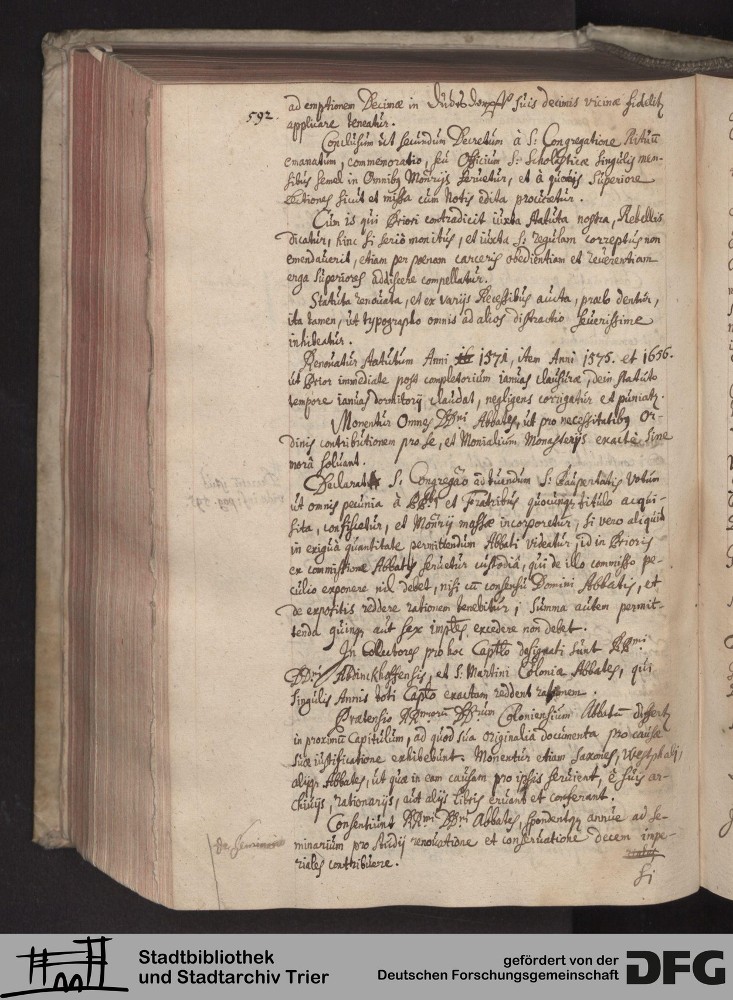 592.
ad emptionem Decimæ in suis decimis vicinæ fideliter
applicare teneatur.
Conclusum ut secundum Decretum à S. Congregatione Rituũ
emanatum, commemoratio, seu Officium S. Scholasticæ singulis men-
sibus semel in Omnibq Monrijs servetur, et à quovis Superiore
Lectiones sicut et missa cum Notis edita procuretur.
Cum is qui Priori contradicit iuxta statuta nostra, Rebellis
dicatur, hinc si seriò monitus, et iuxta S. regulam correptus non
emendaverit, etiam per pœnam carceris obedientiam et reverentiam
erga Superiores addiscere compellatur.
Statuta renovata, et ex varijs Recessibus aucta, prælo dentur,
ita tamen, ut typographo omnis ad alios distractio severissimè
inhibeatur.
Renovatur statutum Anni 1571, item Anni 1575. et 1656.
ut Prior immediate post completorium ianuas clausuræ, dein statuto
tempore ianuas dormitorij claudat, negligens corrigatur et puniatr.
Monentur Omnes DDni Abbates, ut pro necessitatibq Or-
dinis contributionem pro se, et Monialium Monasterijs exactè sine
morâ solvant.
Declarat S. Congregão ad tuendum S. Paupertatis Votum
ut omnis pecunia à PPbs et Fratribus quocunq titulo acqui-
sita, confiscetur, et Monrij massæ incorporetur, si vero aliquid
in exiguâ quantitate permittendum Abbati videatur, id in Prioris
ex commissione Abbatis servetur custodiâ, qui de illo commisso pe-
culio exponere nil debet, nisi cũ consensu Domini Abbatis, et
de expositis reddere rationem tenebitur; summa autem permit-
tenda quinq aut sex imples excedere non debet.
In Collectores pro hoc Captlo designati sunt RRmi
DDni Abdinckhoffensis, et S. Martini Coloniæ Abbates, qui
singulis Annis toti Captlo exactam reddent rationem.
Prætensio RRmorũ DDrum Coloniensium Abbatũ differtr
in proximũ Capitulum, ad quod sua originalia documenta pro causæ
suæ iustificatione exhibebunt. Monentur etiam Saxones, Westphali,
alijq Abbates, ut quæ in eam causam pro ipsis serviunt, è suis ar-
chivijs, rationarijs, aut alijs libris eruant et conferant.
Consentiunt RRmi DDni Abbates, spondentq annue ad Se-
minarium pro studij renovatione et conservatione decem impe-
riales contribuere.
de Seminario
si
Stadtbibliothek
und Stadtarchiv Trier
gefördert von der
Deutschen Forschungsgemeinschaft
DFG